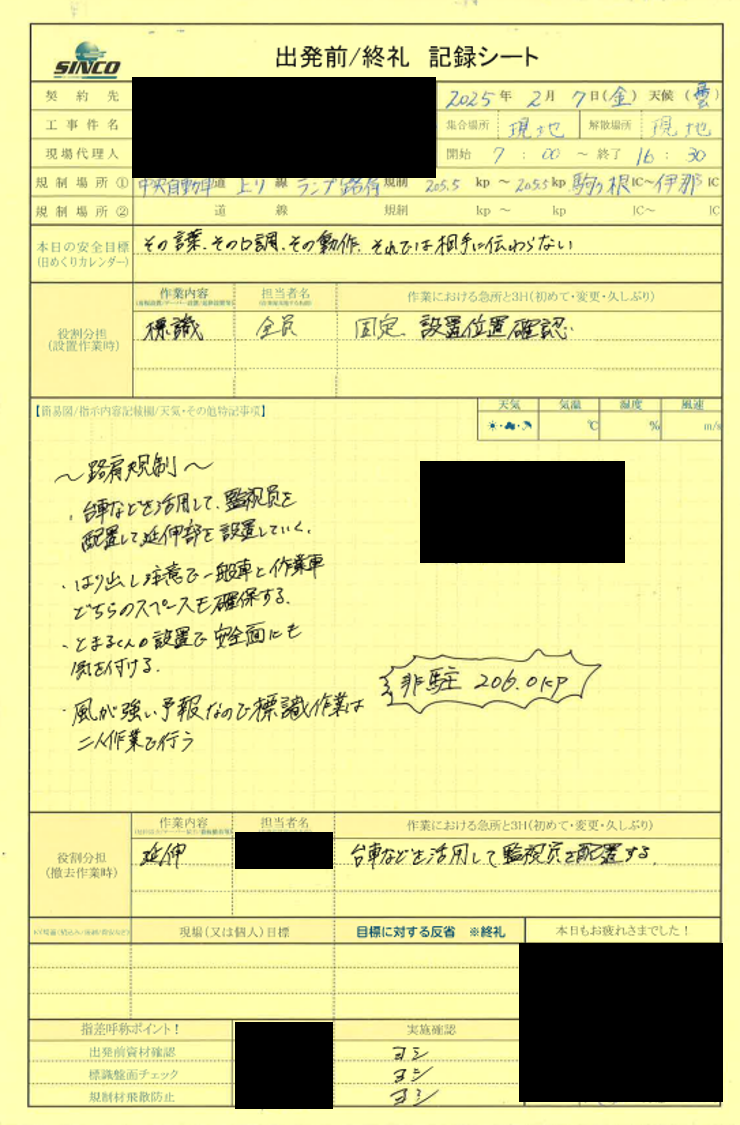 SINCO
出発前/終礼 記録シート
契約先 2025年 2月 7日(金) 天候(曇)
工事件名 集合場所 現地 解散場所 現地
現場代理人 開始 7:00 ～ 終了 16:30
規制場所① 中央自動車道 上り線 ランプ路肩 規制 205.5 kp ～ 205.5 kp 駒ヶ根IC～伊那IC
規制場所② 道 線 規制 kp ～ kp IC～ IC
本日の安全目標 その言葉、その口調、その動作、それでは相手に伝わらない
(日めくりカレンダー)
作業内容 担当者名 作業における急所と3H(初めて・変更・久しぶり)
役割分担 標識 全員 固定、設置位置確認
(設置作業時)
【簡易図/指示内容記録欄/天気・その他特記事項】 天気 気温 湿度 風速
℃ % m/s
～路肩規制～
・台車などを活用して、監視員を
配置して延伸部を設置していく。
・はり出し注意で一般車と作業車
どちらのスペースも確保する。
・とまるくんの設置で安全面にも
気を付ける。
非駐 206.0kp
・風が強い予報なので標識作業は
二人作業で行う
作業内容 担当者名 作業における急所と3H(初めて・変更・久しぶり)
役割分担 延伸 台車などを活用して監視員を配置する。
(撤去作業時)
現場(又は個人)目標 目標に対する反省 ※終礼 本日もお疲れさまでした！
指差呼称ポイント！ 実施確認
出発前資材確認 ヨシ
標識盤面チェック ヨシ
規制材飛散防止 ヨシ